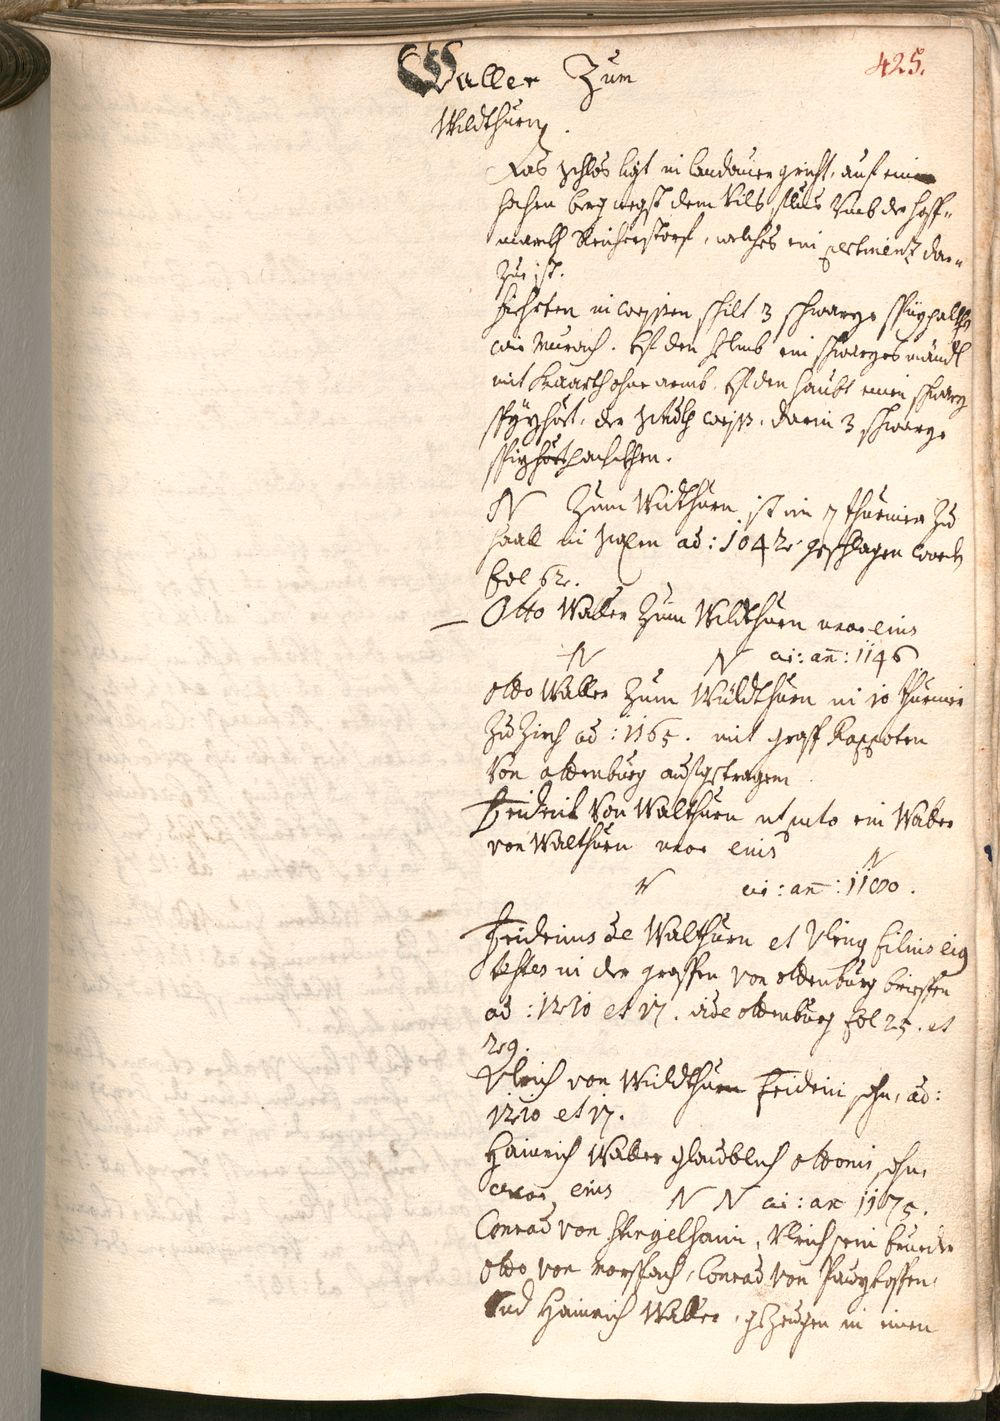 425.
Waller Zum
Wildthurn.
Das schlos ligt in landauer gricht, auf ein
hohen berg negst dem Vils flus Vnd der hoff=
march Reicherstorf, welches ein pertinenz dar=
zue ist.
fiehrten in wappen schilt 3 schwarze
wie Murach. auf den helmb ein schwarzes mändl
mit baarth ohne armb. auf den haubt einen schwarz
spizhuet, der stulp weiss, darin 3 schwarze
N Zum Wildthurn ist im 7 thurnier zu
haall in ad: 1042 geschlagen worden
fol 62.
Otto Waller Zum Wildthurn uxor eius
N N ai: an: 1146
Otto Waller Zum Wildthurn in 10 thurnier
zu Zirch ad: 1165. mit graff Rappoten
Von ortenburg aufgetragen
Fridrich Von Walthurn ein Waller
von Walthurn uxor eius
N N ai: an: 1180.
Fridericus de Walthurn et Vlricus filius eius
testes in der graffen von ortenburg brieffen
ad: 1210 et 17. vide ortenburg fol 25. et
29.
Vlrich von Wildthurn Friderici sohn, ad:
1210 et 17.
Hainrich Waller glaublich ottonis sohn,
uxor eius N N ai: an 1175.
Conrad von , Vlrich sein brueder
Otto von morspach, Conrad von
Vnd Hainrich Waller, gezeugen in einen